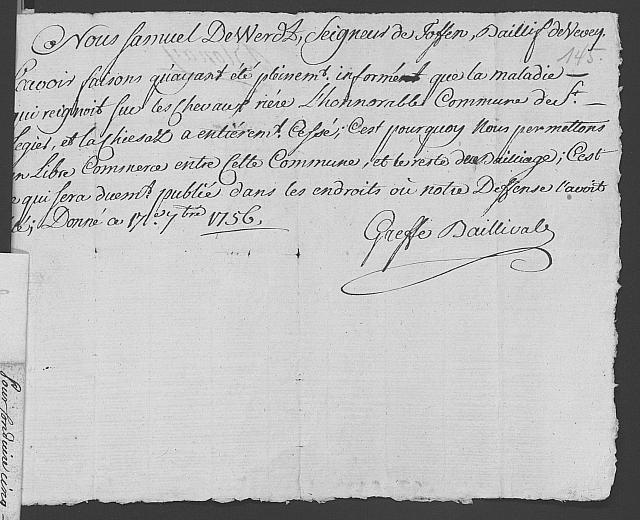 Nous Samuel DeWerdt, Seigneur de Toffen, Baillif de Vevey,
145.
Scavoir faisons qu'ayant été pleinemt. informés que la maladie –
qui reignoit sur les Chevaux riére L'honnorable Commune de St. –
Legier, et la Chiesaz a entiéremt. Cessé; C'est pourquoy Nous permettons
un Libre Commerce entre Cette Commune, et le reste du Bailliage; C'est
ce qui sera duemt. publié dans les endroits où notre Deffense l'avoit
été; Donné ce 17.e 7bre 1756.
Greffe Baillival